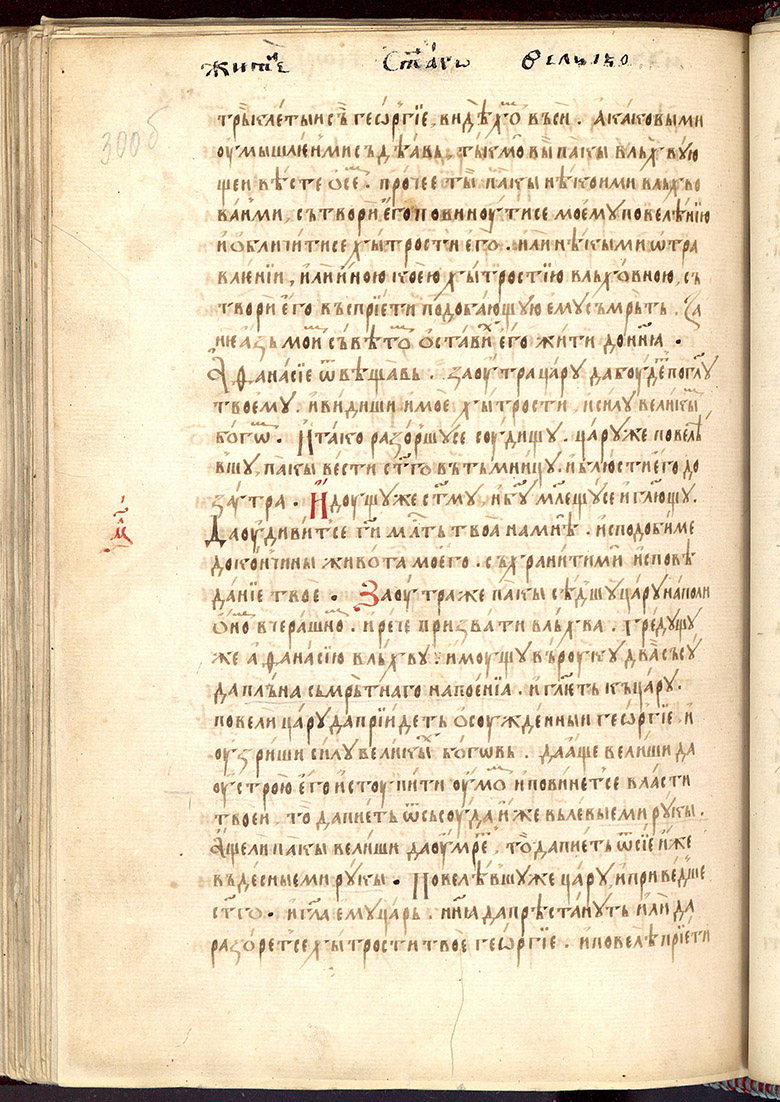 житїе ст҃аго велико
300б
трьклетыи сь геѡ́ргїе, видѣхѡⷨ въси. а҆каковыми
оумышлꙗ́н҆ми сьдѣавь, ты́кмо вы пакы вльхвую
щеи вѣсте ѻ҆се. про́чее ты̀ па́кы нѣкоими вльхво
ва́нми, сътвори е҆го повиноути се моему повелѣ́нїю
и҆ѻ҆бличити се хы́трости е҆го. или нѣкыми ѿтра
влꙗ́нїи, и҆ли и҆ною коею хы́тростїю вльхо́вною, съ
твори е҆го въсприети подоба́ющую е҆му съмрь́ть. За
не а҆зь мои съвѣтѡⷨ ѻ҆ста́вих е҆го жи́ти дон҃нꙗ.
А҆фана́сїе ѿвѣщавь. заоу́тра ца́ру да боу́деⷮ по гл҃у
твоему. и҆видиши и҆мое хы́трости, и҆силу великыⷨ
бо́гѡⷨ. И҆тако разо́ршу се соу́дищу. ца́ру же повелѣ
вшу, па́кы вести ст҃го въть́мницу. и҆блюсти е҆го до
за́утра. И҆доущу же ст҃му, и҆б҃у мл҃ещу се и҆гл҃ющу.
Даоу́диви́т се ги҃ мл҃ть твоꙗ̀ на мнѣ̀. и҆сподоби ме
доко́нчины живота моего. съхранити ми и҆сповѣ
да́нїе твое. Заоу́тра же па́кы сѣ́дшу ца́ру наполи
ѻ҆но вчера́шно. и҆рече призвати вльхва. хредущу
же а҆фана́сїю вльхву, имоущу въроуку два̀ съсу
да пль́на съмрь́тнаго напоенїа. и҆гл҃еть къца́ру.
повели ца́ру да прїи́деть ѻ҆соужде́нныи геѡ́ргїе. и
оу́зриши силу великыⷯ бо́говь. да а҆ще велиши да
оу́строю е҆го и҆стоупити оу́моⷨ и҆повине́т се власти
твоеи, то да пие́ть ѿсьсоуда и҆же вьлевыеми ру́кы.
А҆ще ли па́кы велиши да оу́мреⷮ. то̀ да пие́ть ѿсїе и҆же
въде́сные ми ру́кы. Повелѣ́вшу же ца́ру, и҆приве́дше
ст҃го. и҆гл҃а е҆му ца́рь. нн҃ꙗ да прѣста́нуть и҆ли да
разо́рет се хы́трости твое геѡ́ргїе. и҆повелѣ прїети